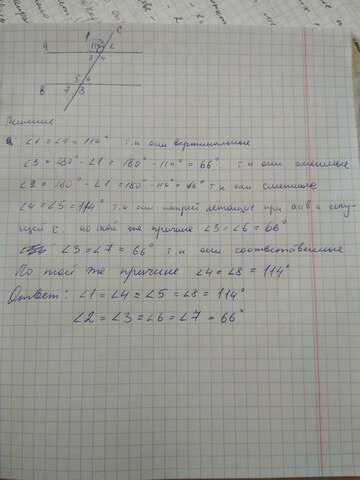 C
1 114° 2
a
3 4
5 6
B
7 8
Решение
∠1 = ∠4 = 114° т.к они вертикальные
∠3 = 180° - ∠1 = 180° - 114° = 66° т.к они смежные
∠2 = 180° - ∠1 = 180° - 114° = 66° т.к они смежные
∠4 = ∠5 = 114° т.к они накрест лежащие при a и в и секущей с. по той же причине ∠3 = ∠6 = 66°
∠3 = ∠7 = 66° т.к они соответственные
По той же причине ∠4 = ∠8 = 114°
Ответ: ∠1 = ∠4 = ∠5 = ∠8 = 114°
∠2 = ∠3 = ∠6 = ∠7 = 66°